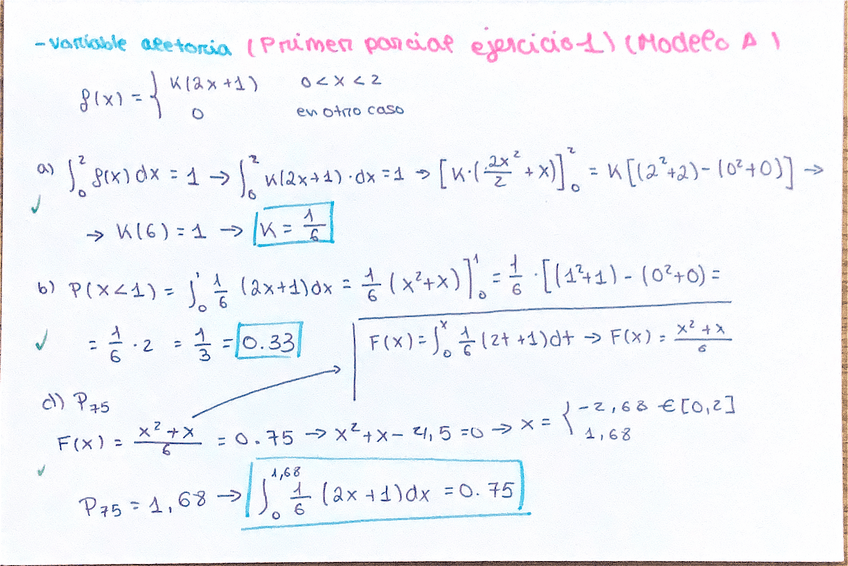 - variable aletoria (Primer parcial ejercicio 1) (Modelo A)
f(x) = { K(2x+1) 0 < x < 2
0 en otro caso
a) ∫₀² f(x) dx = 1 → ∫₀² K(2x+1)·dx = 1 → [K·(2x²/2 + x)]₀² = K[(2²+2)-(0²+0)] →
✓ → K(6) = 1 → K = 1/6
b) P(X<1) = ∫₀¹ 1/6 (2x+1)dx = 1/6 (x²+x)]₀¹ = 1/6 · [(1²+1) - (0²+0) =
✓ = 1/6 · 2 = 1/3 = 0.33 F(x) = ∫₀ˣ 1/6 (2t+1)dt → F(x) = x²+x/6
d) P₇₅
F(x) = x²+x/6 = 0.75 → x²+x-4,5=0 → x = { -2,68 ∈ [0,2]
1,68
✓ P₇₅ = 1,68 → ∫₀^1,68 1/6 (2x+1)dx = 0.75